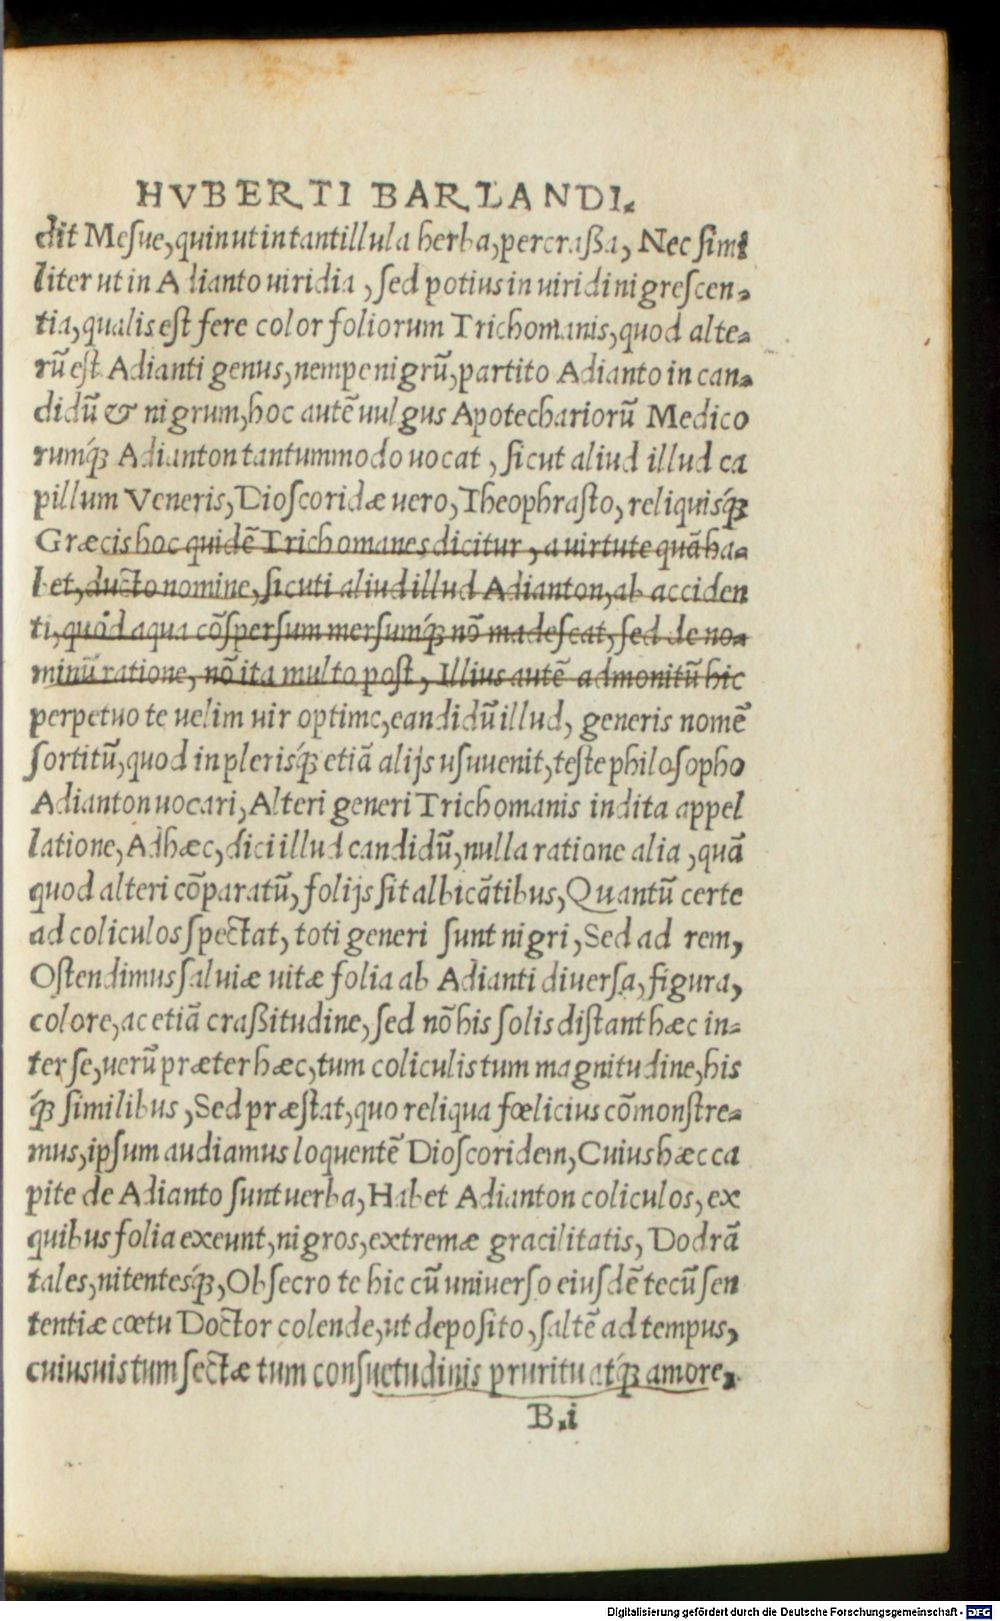 HVBERTI BARLANDI.
dit Mesue, quin ut in tantillula herba, percraßa, Nec simi
liter ut in Adianto uiridia , sed potius in uiridi nigrescen-
tia, qualis est fere color foliorum Trichomanis, quod alte-
rũ est Adianti genus, nempe nigrũ, partito Adianto in can-
didũ & nigrum, hoc autẽ uulgus Apothecariorũ Medico
rumq́; Adianton tantummodo uocat , sicut aliud illud ca
pillum Veneris, Dioscoridæ uero, Theophrasto, reliquisq́;
Græcis hoc quidẽ Trichomanes dicitur , a uirtute quã ha-
bet, ducto nomine, sicuti aliud illud Adianton, ab acciden
ti, quòd aqua cõspersum mersumq́; nõ madescat, sed de no-
minũ ratione, nõ ita multo post , Illius autẽ admonitũ hic
perpetuo te uelim uir optime, candidũ illud, generis nomẽ
sortitũ, quod in plerisq́; etiã alijs usuuenit, teste philosopho
Adianton uocari, Alteri generi Trichomanis indita appel
latione, Adhæc, dici illud candidũ, nulla ratione alia , quã
quod alteri cõparatũ, folijs sit albicãtibus, Quantũ certe
ad coliculos spectat, toti generi sunt nigri, Sed ad rem,
Ostendimus saluiæ uitæ folia ab Adianti diuersa, figura,
colore, ac etiã craßitudine, sed nõ his solis distant hæc in-
ter se, uerũ præter hæc, tum coliculis tum magnitudine, his
q́; similibus , Sed præstat, quo reliqua fœlicius cõmonstre-
mus, ipsum audiamus loquentẽ Dioscoridem, Cuius hæc ca
pite de Adianto sunt uerba, Habet Adianton coliculos, ex
quibus folia exeunt, nigros, extremæ gracilitatis, Dodrã
tales, nitentesq́;, Obsecro te hic cũ uniuerso eiusdẽ tecũ sen
tentiæ cœtu Doctor colende, ut deposito , saltẽ ad tempus,
cuiusuis tum sectæ tum consuetudinis pruritu atq́; amore,
B.i
Digitalisierung gefördert durch die Deutsche Forschungsgemeinschaft - DFG